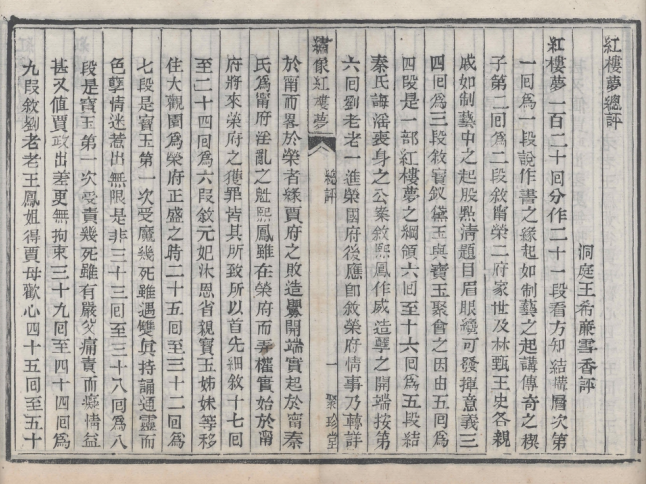 紅樓夢總評
洞庭王希廉雪香評
紅樓夢一百二十回分作二十一段看方知結構層次第
一回爲一段說作書之緣起如制藝之起講傳奇之楔
子第二回爲二段敘甯榮二府家世及林甄王史各親
戚如制藝中之起股點清題目眉眼纔可發揮意義三
四回爲三段敘寶釵黛玉與寶玉聚會之因由五回爲
四段是一部紅樓夢之綱領六回至十六回爲五段結
秦氏誨淫喪身之公案敘熙鳳作威造孽之開端按第
六回劉老老一進榮國府後應卽敘榮府情事乃轉詳
繡像紅樓夢
總評
一
聚珍堂
於甯而畧於榮者緣賈府之敗造釁開端實起於甯秦
氏爲甯府淫亂之魁熙鳳雖在榮府而弄權實始於甯
府將來榮府之獲罪皆其所致所以首先細敘十七回
至二十四回爲六段敘元妃沐恩省親寶玉姊妹等移
住大觀園爲榮府正盛之時二十五回至三十二回爲
七段是寶玉第一次受魔幾死雖遇雙眞持誦通靈而
色孽情迷惹出無限是非三十三回至三十八回爲八
段是寶玉第一次受責幾死雖有嚴父痛責而癡情益
甚又值賈政出差更無拘束三十九回至四十四回爲
九段敘劉老老王鳳姐得賈母歡心四十五回至五十